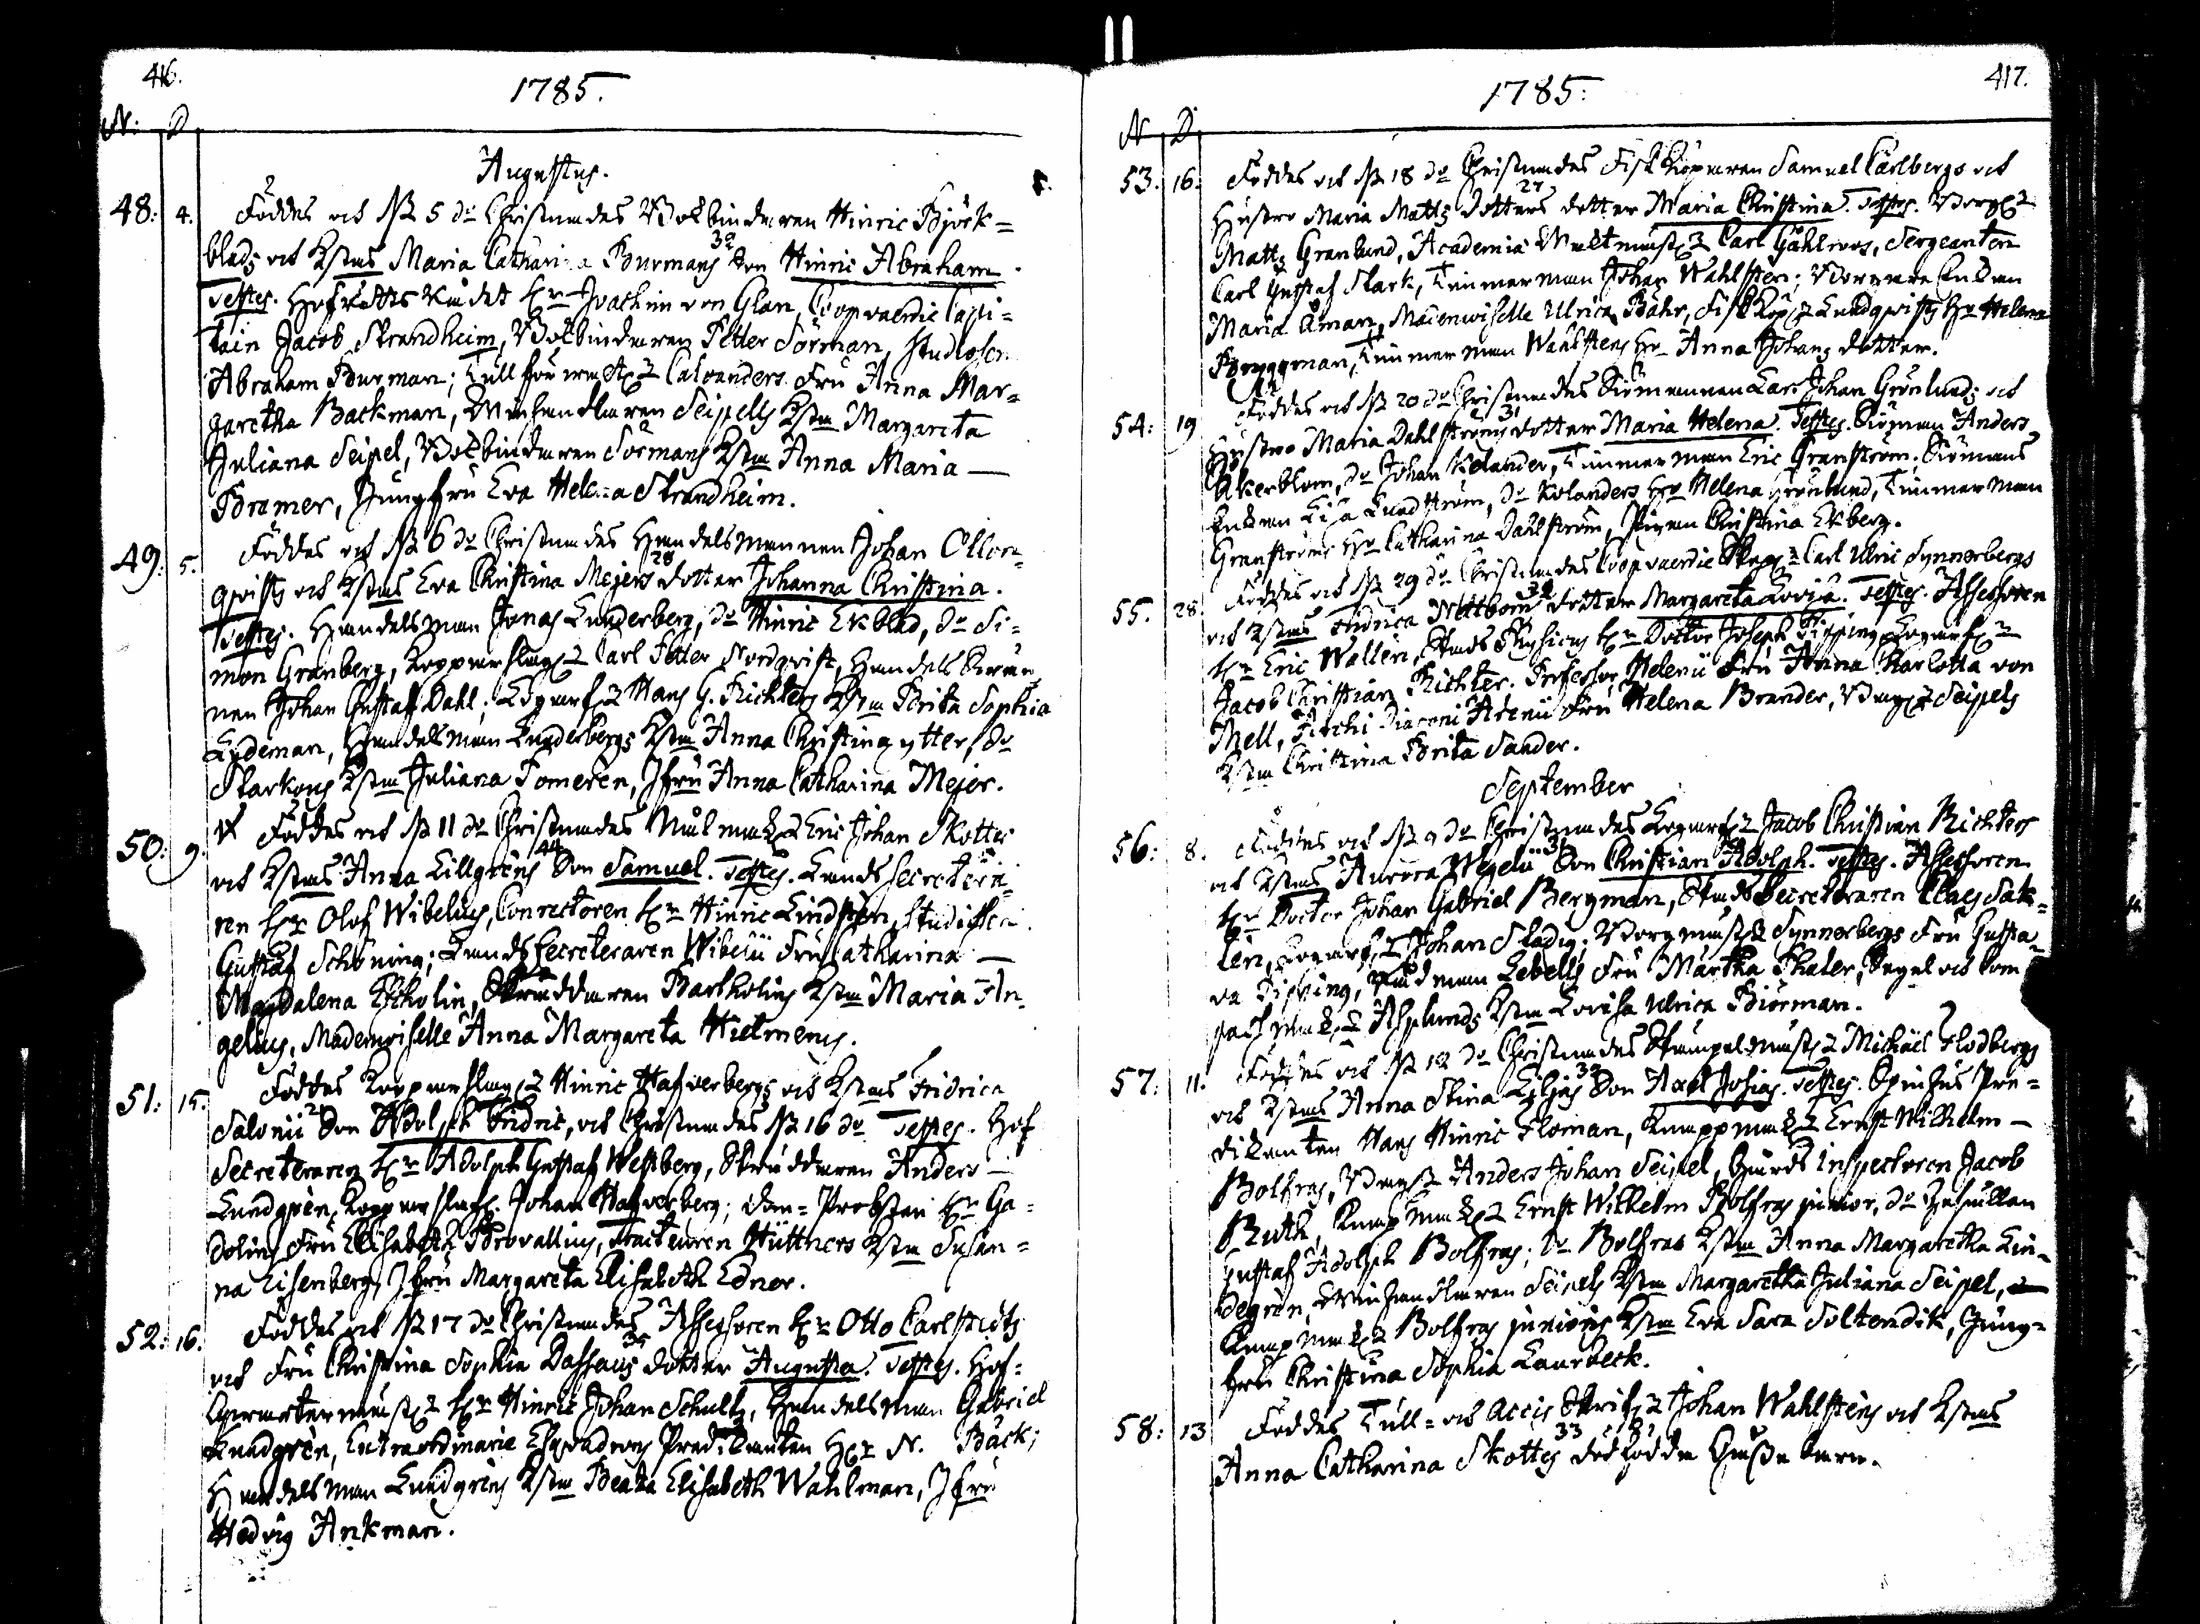 416.
1785.
N: D
Augustus.
48: 4. Föddes och d 5 do Christnades Bokbindaren Hinric Björk=
blads och Hstrus Maria Catharina Burmans 32 Son Hinric Abraham.
Testes. Hofrätts Rådet Hr Joachim von Glan, Coopvaerdie Capi=
tain Jacob Strandheim, Bokbindaren Petter Sörman, Studiosen
Abraham Burman; Tullförvalt Calvanders Fru Anna Mar=
garetha Backman, Minhandlaren Seipells Hstru Margareta
Juliana Seipel, Bokbindaren Sörmans Hstru Anna Maria —
Bramer, Jungfru Eva Helena Strandheim.
49: 5. Föddes och d 6 do Christnades Handelsmannen Johan Ollon=
qvists och Hstrus Eva Christina Mejers 28 dotter Johanna Christina.
Testes. Handelsman Jonas Lunderberg, do Hinric Ekblad, do Si=
mon Granberg, Kopparslag Carl Petter Nordqvist, Handels
nen Johan Gustaf Dahl; Hans G. Richters Hstru Brita Sophia
Lydeman, Handelsman Lunderbergs Hstru Anna Christina ytter, do
Starkous Hstru Juliana Tomeren, Jfru Anna Catharina Mejer.
50: 9. Föddes och d 11 do Christnades Eric Johan Skottes
och Hstrus Anna Lillgrens 44 Son Samuel. Testes. Landssecretera=
ren Hr Olof Wibelius, Conrectoren Hr Hinric Lindsten, Studiosen
Gustaf Schöning; Landssecreteraren Wibelii Fru Catharina —
Magdalena Escholin, Skräddaren Bartholins Hstru Maria An=
gelius, Mademoiselle Anna Margareta Hielmerus.
51: 15. Föddes Kopparslag Hinric Hafverbergs och Hstrus Fridrica
Salonii 2 Son Adolph Fridric, och Christnades d 16 do Testes. Hof
Secreteraren Hr Adolph Gustaf Westberg, Skräddaren Anders —
Lundgren, Kopparslag. Johan Hafverberg; Dom=Probsten Hr Ga=
dolins Fru Elisabeth Browallius, Hüttners Hstru Susan=
na Eisenberg, Jfru Margareta Elisabeth Edner.
52: 16. Föddes och d 17 do Christnades Assessoren Hr Otto Carlstedts
och Fru Christina Sophia Dassaus 35 dotter Augusta. Testes. Hof=
Hr Hinric Johan Schultz, Handelsman Gabriel
Lundgren, Extraordinarie Esqvadrons Predikanten Hr N. Bäck;
Handelsman Lundgrens Hstru Beata Elisabeth Wahlman, Jfru
Hedvig Ankman.
417.
1785:
N D
53. 16. Föddes och d 18 do Christnades Fisk Köparen Samuel Carlbergs och
Hustro Maria Matts 27 dotters dotter Maria Christina. Testes. Borg
Matts Granlund, Academiæ Carl Gåhlroos, Sergeanten
Carl Gustaf Stark, Timmerman Johan Wahlsten; Borgare Enkan
Maria Åman, Mademoiselle Ulrica Bähr, FiskKöp Lundqvists Hr Helena
Bryggman, Timmerman Wahlstens Hr Anna Johans dotter.
54: 19 Föddes och d 20 do Christnades Siömannen Carl Johan Grönlunds och
Hustro Maria Dahlströms 31 dotter Maria Helena. Testes. Siöman Anders
Åkerblom, do Johan Kolander, Timmerman Eric Granström; Siömans
Enkan Lisa Lundström, do Kolanders Hr Helena Grönlund, Timmerman
Granströms Hr Catharina Dahlström, Pigan Christina Ekberg.
55. 28. Föddes och d 29 do Christnades Coopvaerdie Carl Ulric Synnerbergs
och Hstrus Fridrica Nettboms 32 dotter Margareta Lovisa. Testes. Assessoren
Hr Eric Wallen, Stads Physicus Hr Doctor Joseph Pipping,
Jacob Christian Richter. Professor Helenii Fru Anna Charlotta von
Mell, Archi-Diaconi Arenii Fru Helena Brander, Seipels
Hstru Christina Brita Sander.
September
56: 8. Föddes och d 9 do Christnades Jacob Christian Richters
och Hstrus Aurora Wegelii 31 Son Christian Adolph. Testes. Assessoren
Hr Doctor Johan Gabriel Bergman, Stads Secreteraren Claes Sak=
len, Johan Stadig; Synnerbergs Fru Gusta=
va Pipping, Rådman Zebells Fru Martha Thaler, Segel och
Asplunds Hstru Lovisa Ulrica Biörman.
57: 11. Föddes och d 12 do Christnades Michael Flodbergs
och Hstrus Anna Stina Liljas 32 Son Axel Josias. Testes. Spinhus Pre=
dikanten Hans Hinric Floman, Ernst Wilhelm —
Bolfras, Anders Johan Seipel, Gårds Inspectoren Jacob
Ruth, Ernst Wilhelm Bolfras junior, do Gesällen
Gustaf Adolph Bolfras; do Bolfras Hstru Anna Margaretha Lin=
degren, Minhandlaren Seipels Hstru Margaretha Juliana Seipel, —
Bolfras juniors Hstru Eva Sara Soltendik, Jung=
fru Christina Sophia Laurbeck.
58: 13 Föddes Tull= och Accis Skrif Johan Wahlstens och Hstrus
Anna Catharina Skottes 33 dödfödda barn.